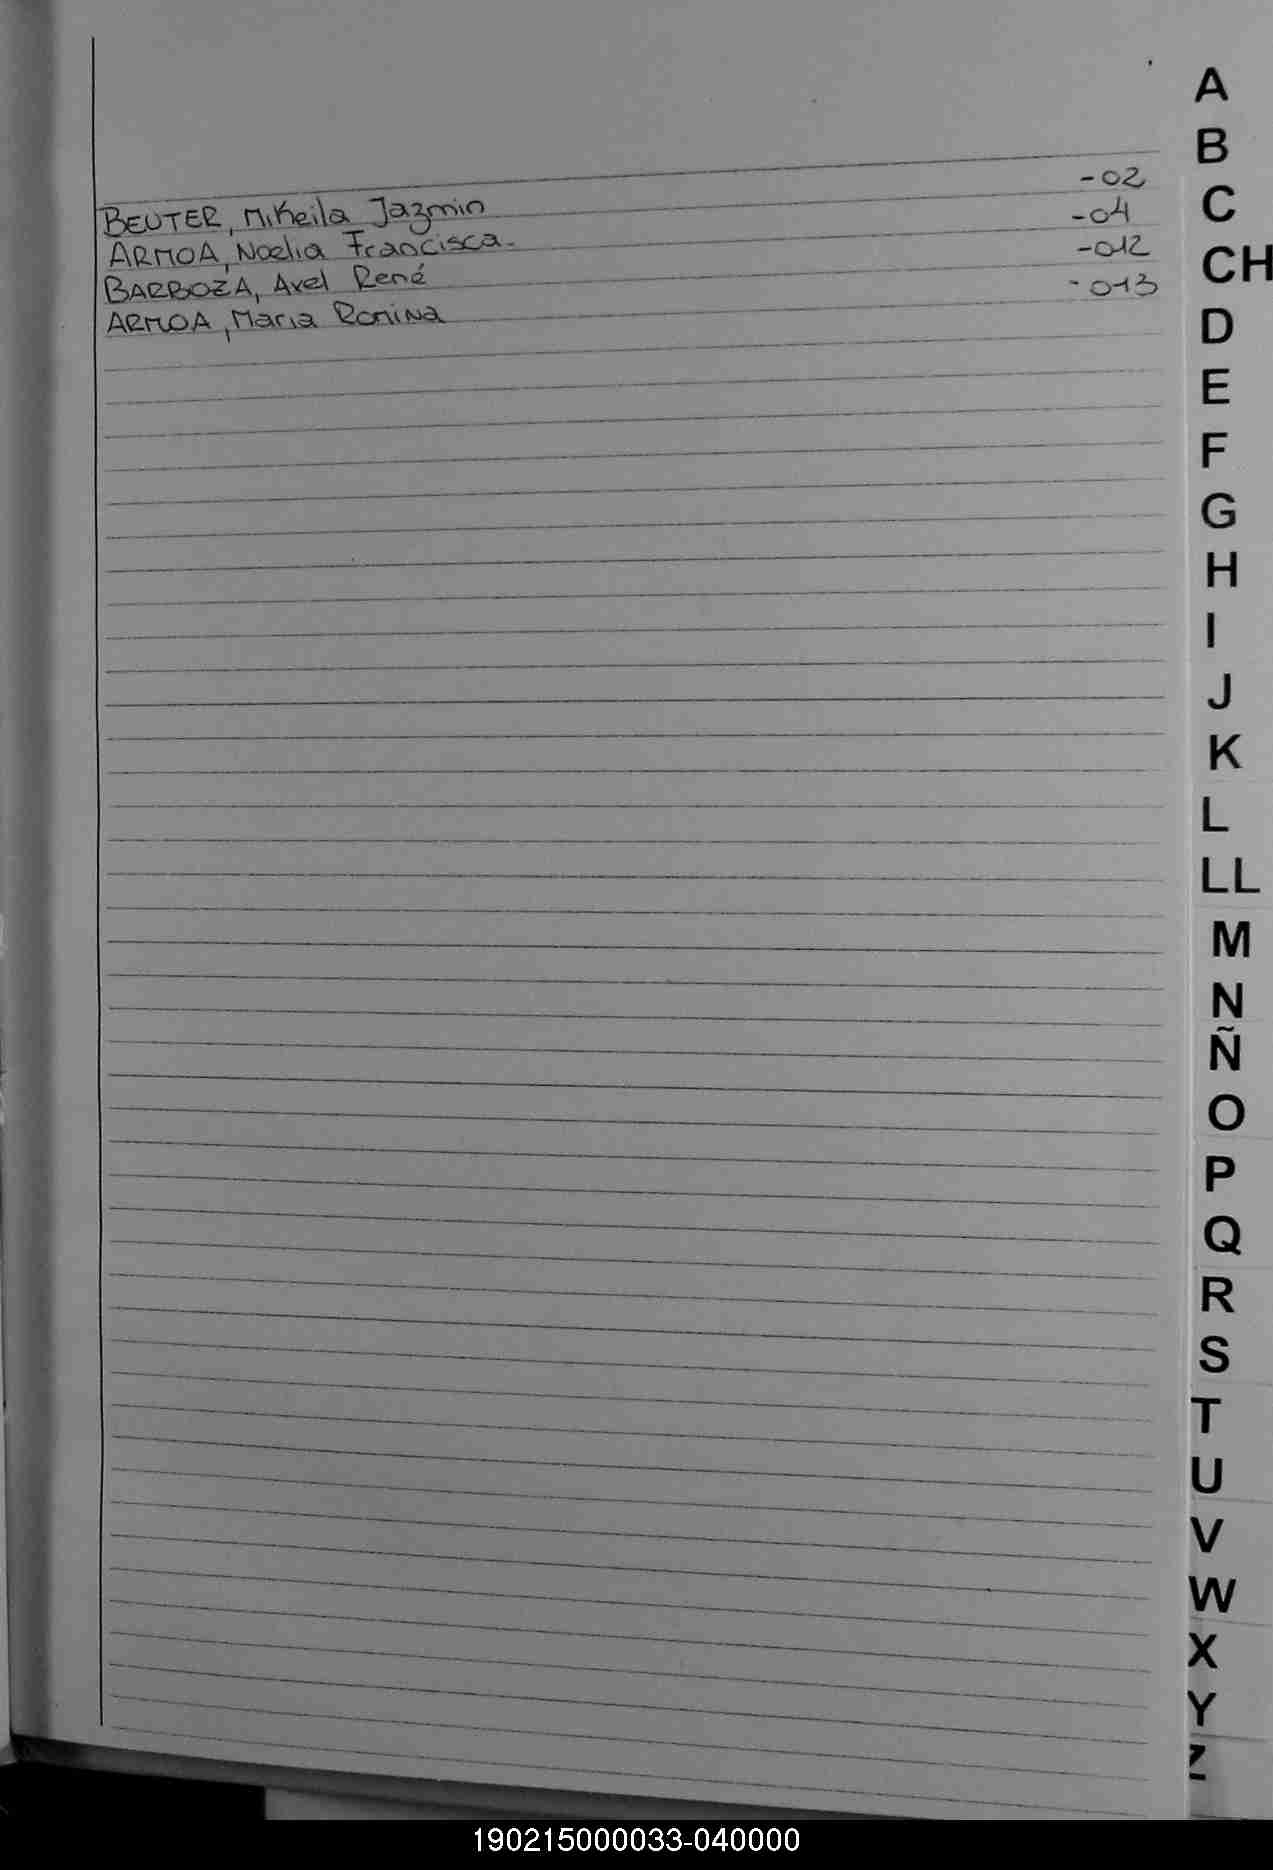 BEUTER, Mikeila Jazmin -02
ARMOA, Noelia Francisca. -04
BARBOZA, Axel René -012
ARMOA, Maria Romina -013
A
B
C
CH
D
E
F
G
H
I
J
K
L
LL
M
N
Ñ
O
P
Q
R
S
T
U
V
W
X
Y
Z
190215000033-040000